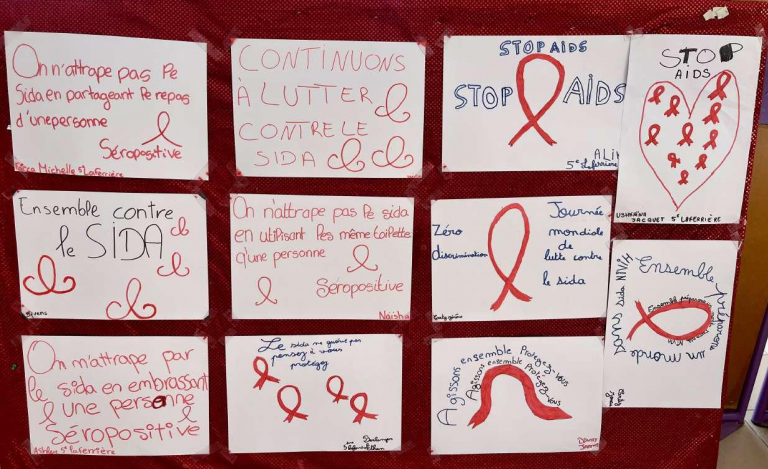 On n'attrape pas le
Sida en partageant le repas
d'une personne
Séropositive
Michelle 5e Laferrière
CONTINUONS
À LUTTER
CONTRE LE
SIDA
STOP AIDS
STOP AIDS
5e Laferrière
STOP
AIDS
JACQUET 5e LAFERRIÈRE
Ensemble contre
le SIDA
On n'attrape pas le sida
en utilisant les même toilettes
q'une personne
Séropositive
Naisha
Zéro
discrimination
Journée
mondiale
de
lutte contre
le sida
Ensemble
préparons
un monde
sans sida NiVIH
Ensemble préparons
On n'attrape par
le sida en embrassant
une personne
Séropositive
Ashley 5e Laferrière
Le sida ne guérit pas
pensez à vous
protégez
Agissons ensemble Protégez-vous
Agissons ensemble Protégez-vous